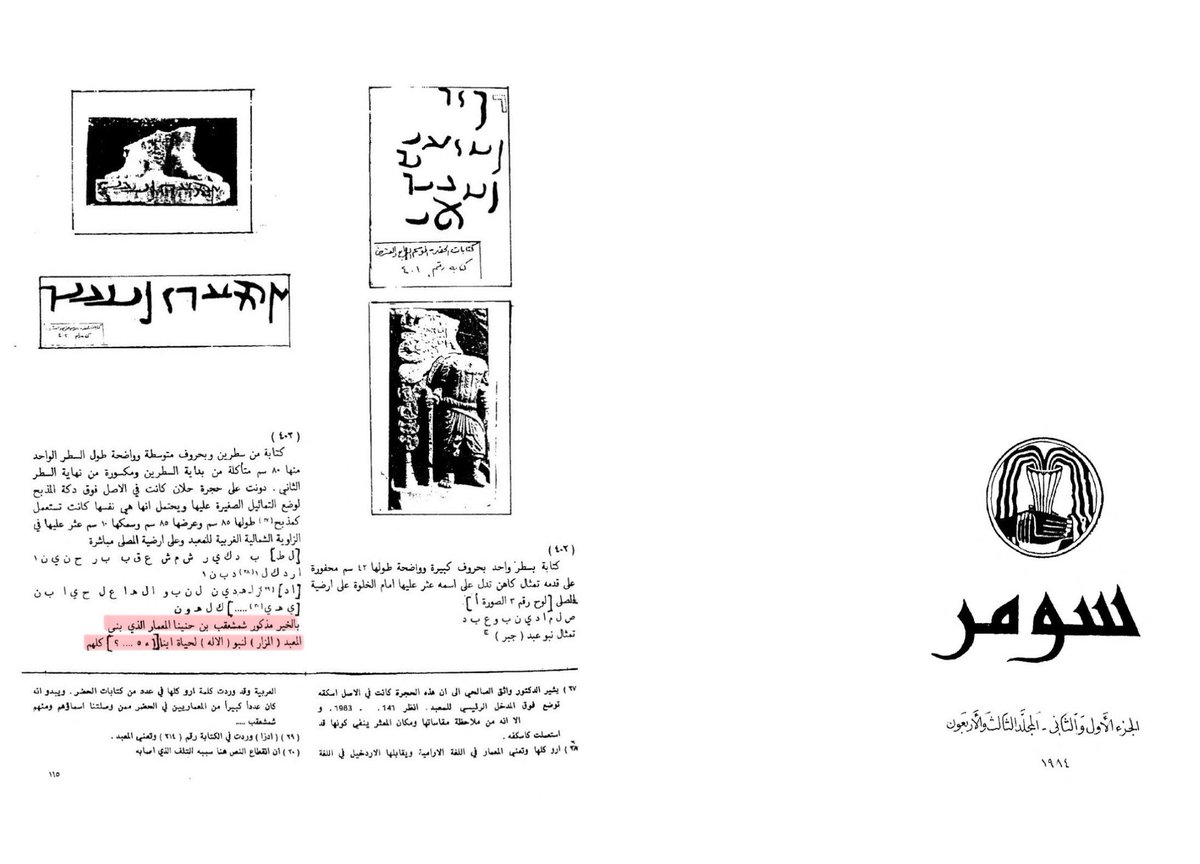 كتابات الحضر - الموسم الرابع والعشرين
كتابة رقم ٤٠١
( ٤٠٢ )
كتابة بسطر واحد بحروف كبيرة وواضحة طولها ٤٢ سم محفورة
على قدمه تمثال كاهن تدل على اسمه عثر عليها امام الخلوة على ارضية
المصلى [لوح رقم ٣ الصورة أ]
ص ل م أ د ي ن ب و ع ب د
تمثال نبو عبد ( جبر )
( ٤٠٣ )
كتابة من سطرين وبحروف متوسطة وواضحة طول السطر الواحد
منها ٨٠ سم متأكلة من بداية السطرين ومكسورة من نهاية السطر
الثاني . دونت على حجرة حلان كانت في الاصل فوق دكة المذبح
لوضع التماثيل الصغيرة عليها ويحتمل انها هي نفسها كانت تستعمل
كمذبح (٢٧) طولها ٨٥ سم وعرضها ٨٥ سم وسمكها ١٠ سم عثر عليها في
الزاوية الشمالية الغربية للمعبد وعلى ارضية المصلى مباشرة
[ل ط] ب د ك ي ر ش م ش ع ق ب ب ر ح ن ي ن ا
ا ر د ك ل ا (٢٨) د ب ن ا
[ا د] (٢٩) ز ا هـ د ي ن ل ن ب و ا ل هـ ا ع ل ح ي ا ب ن
[ي هـ ي (٣٠) .....] ك ل هـ و ن
بالخير مذكور شمشعقب بن حنينا المعمار الذي بنى
المعبد ( المزار ) لنبو ( الاله ) لحياة ابنا[ء ه .... ؟] كلهم
٢٧ ) يشير الدكتور واثق الصالحي الى ان هذه الحجرة كانت في الاصل اسكفه
توضع فوق المدخل الرئيسي للمعبد . انظر 141 . . 1983 , و
الا انه من ملاحظة مقاساتها ومكان المعثر ينفي كونها قد
استعملت كاسكفه .
٢٨ ) ارو كلها وتعني المعمار في اللغة الارامية ويقابلها الاردخيل في اللغة
العربية وقد وردت كلمة ارو كلها في عدد من كتابات الحضر . ويبدو انه
كان عدداً كبيراً من المعماريين في الحضر ممن وصلتنا اسماؤهم ومنهم
شمشعقب ....
( ٢٩ ) ( ادزا ) وردت في الكتابة رقم ( ٢١٤ ) وتعني المعبد .
( ٣٠ ) ان انقطاع النص هنا سببه التلف الذي اصابه
١١٥
سومر
الجزء الأول والثاني - المجلد الثالث والأربعون
١٩٨٤